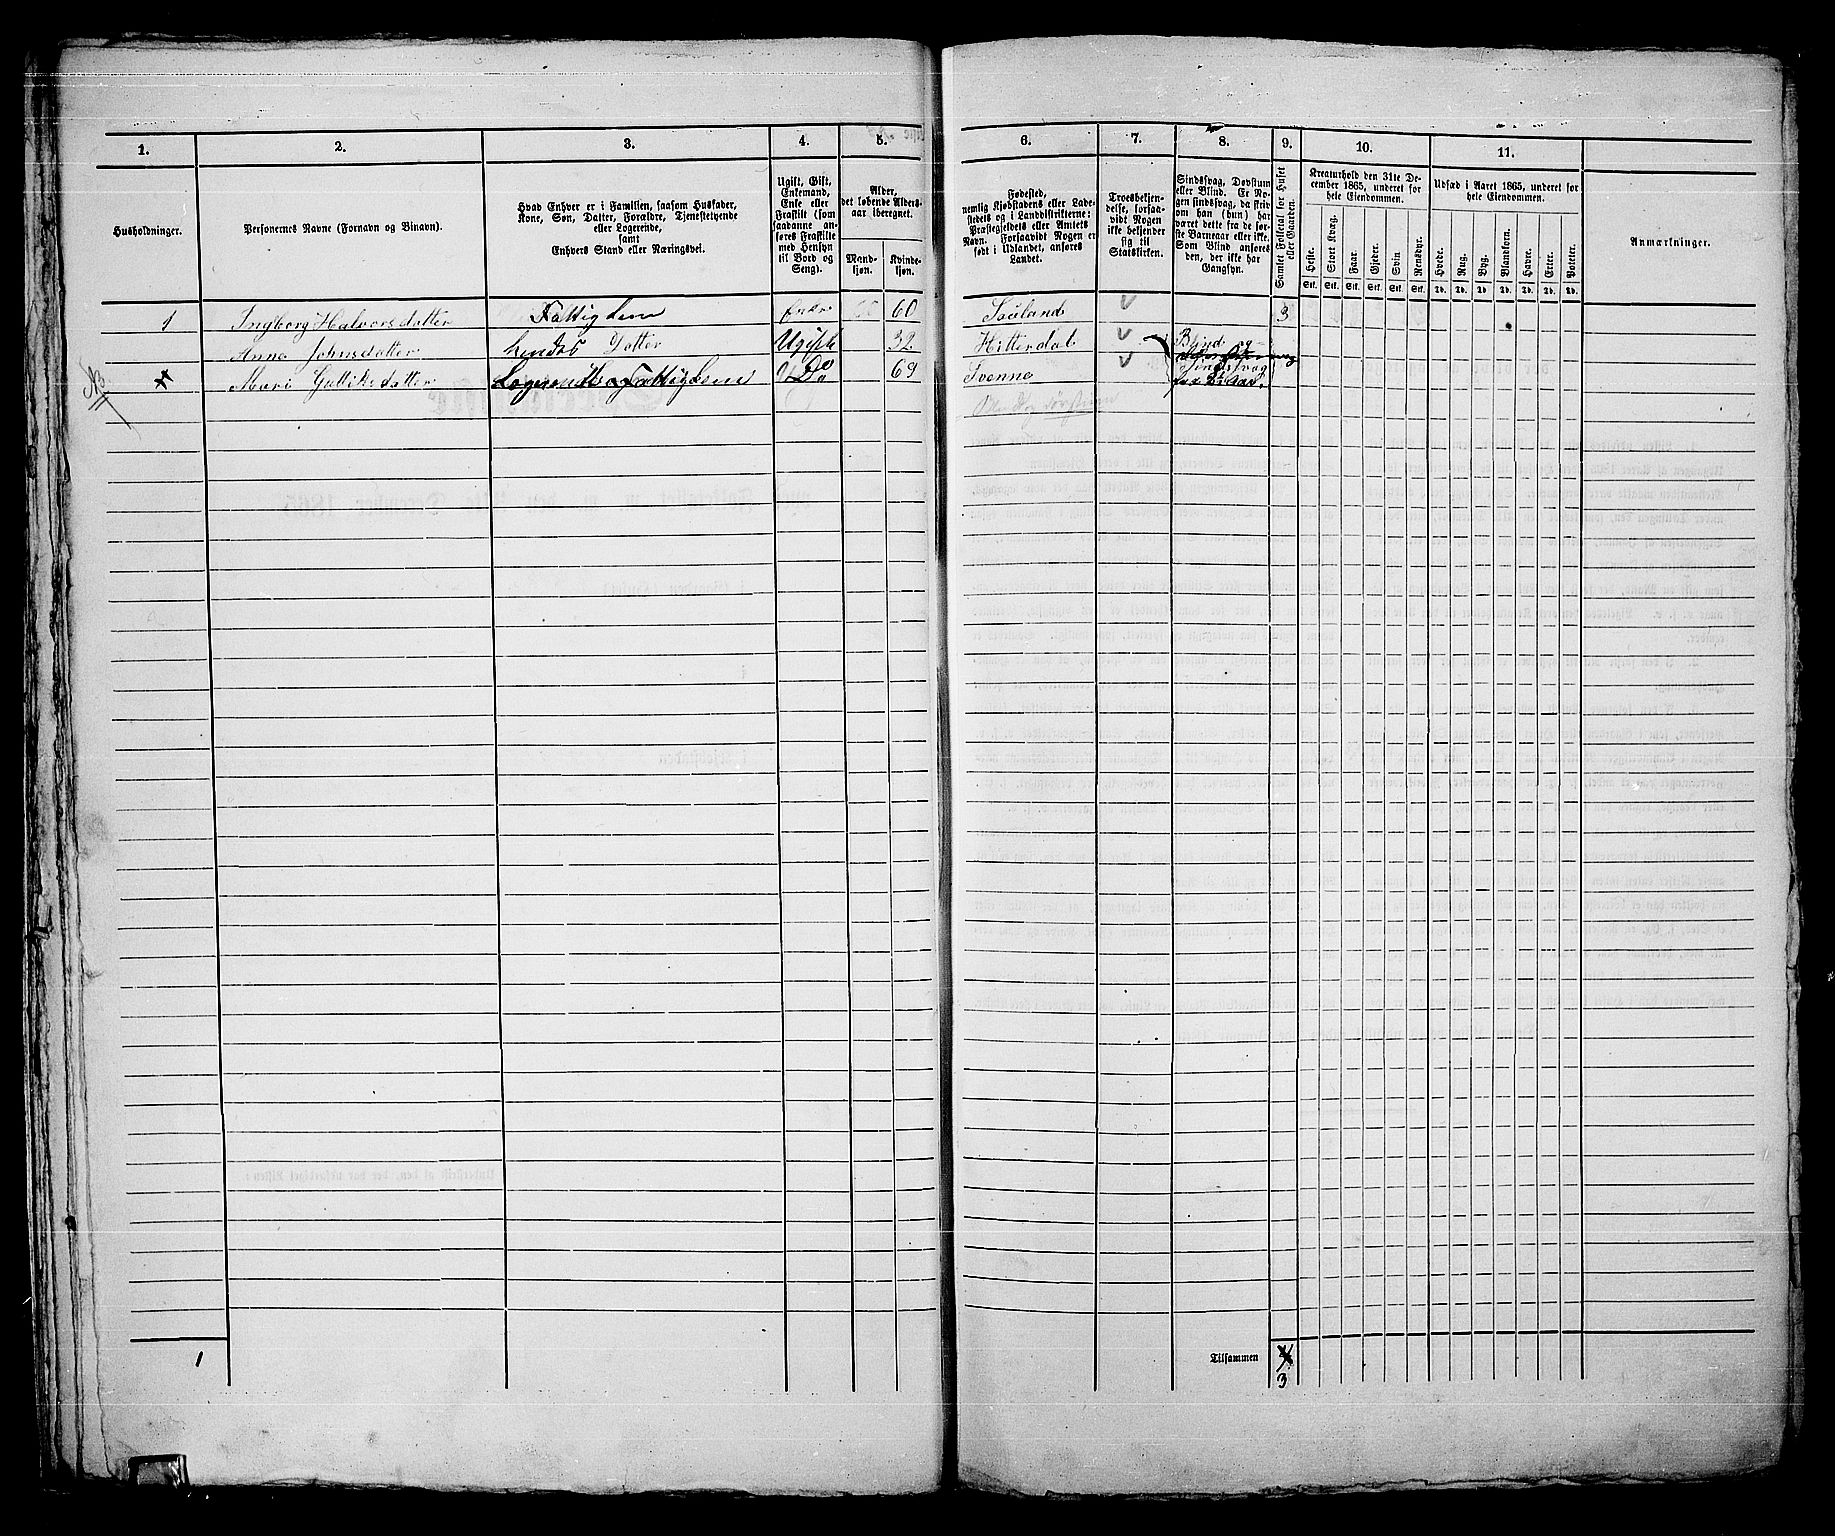 1.
2.
3.
4.
5.
6.
7.
8.
9.
10.
11.
Husholdninger.
Personernes Navne (Fornavn og Binavn).
Hvad Enhver er i Familien, saasom Husfader,
Kone, Søn, Datter, Forældre, Tjenestetyende
eller Logerende,
samt
Enhvers Stand eller Næringsvei.
Ugift, Gift,
Enkemand,
Enke eller
Fraskilt (som
saadanne an-
søres Fraskilte
med Hensyn
til Bord og
Seng).
Alder,
det løbende Alders-
aar iberegnet.
Mand-
kjøn.
Kvinde-
kjøn.
Fødested,
nemlig Kjøbstadens eller Lade-
stedets og i Landdistrikterne:
Præstegjeldets eller Amtets
Navn. Forsaavidt Nogen er
født i Udlandet, anføres
Landet.
Troesbekjen-
delse, forsaa-
vidt Nogen
ikke bekjender
sig til
Statskirken.
Sindssvag, Døvstum
eller Blind. Er No-
gen sindssvag, da skriv
om han (hun) har
været dette fra de før-
ste Barneaar eller ikke.
Som Blind anføres
den, der ikke har
Gangsyn.
Samlet Folketal for Huset
eller Gaarden.
Kreaturhold den 31te De-
cember 1865, underet for
hele Eiendommen.
Heste.
Stort Kvæg.
Faar.
Gjeder.
Svin
Rensdyr.
Stk. Stk. Stk. Stk. Stk. Stk.
Udsæd i Aaret 1865, underet for
hele Eiendommen.
Hvede.
Rug.
Byg.
Blandkorn.
Havre.
Erter.
Poteter.
Td. Td. Td. Td. Td. Td. Td.
Anmærkninger.
1 Ingborg Halvorsdatter Fattiglem Enke 60 Sauland 3
Anne Johnsdatter hendes Datter Ugift 32 Hitterdal Blind og
Sindssvag
Mari Gulliksdatter Logerende og Fattiglem Do 69 Svenne
1
Tilsammen
3